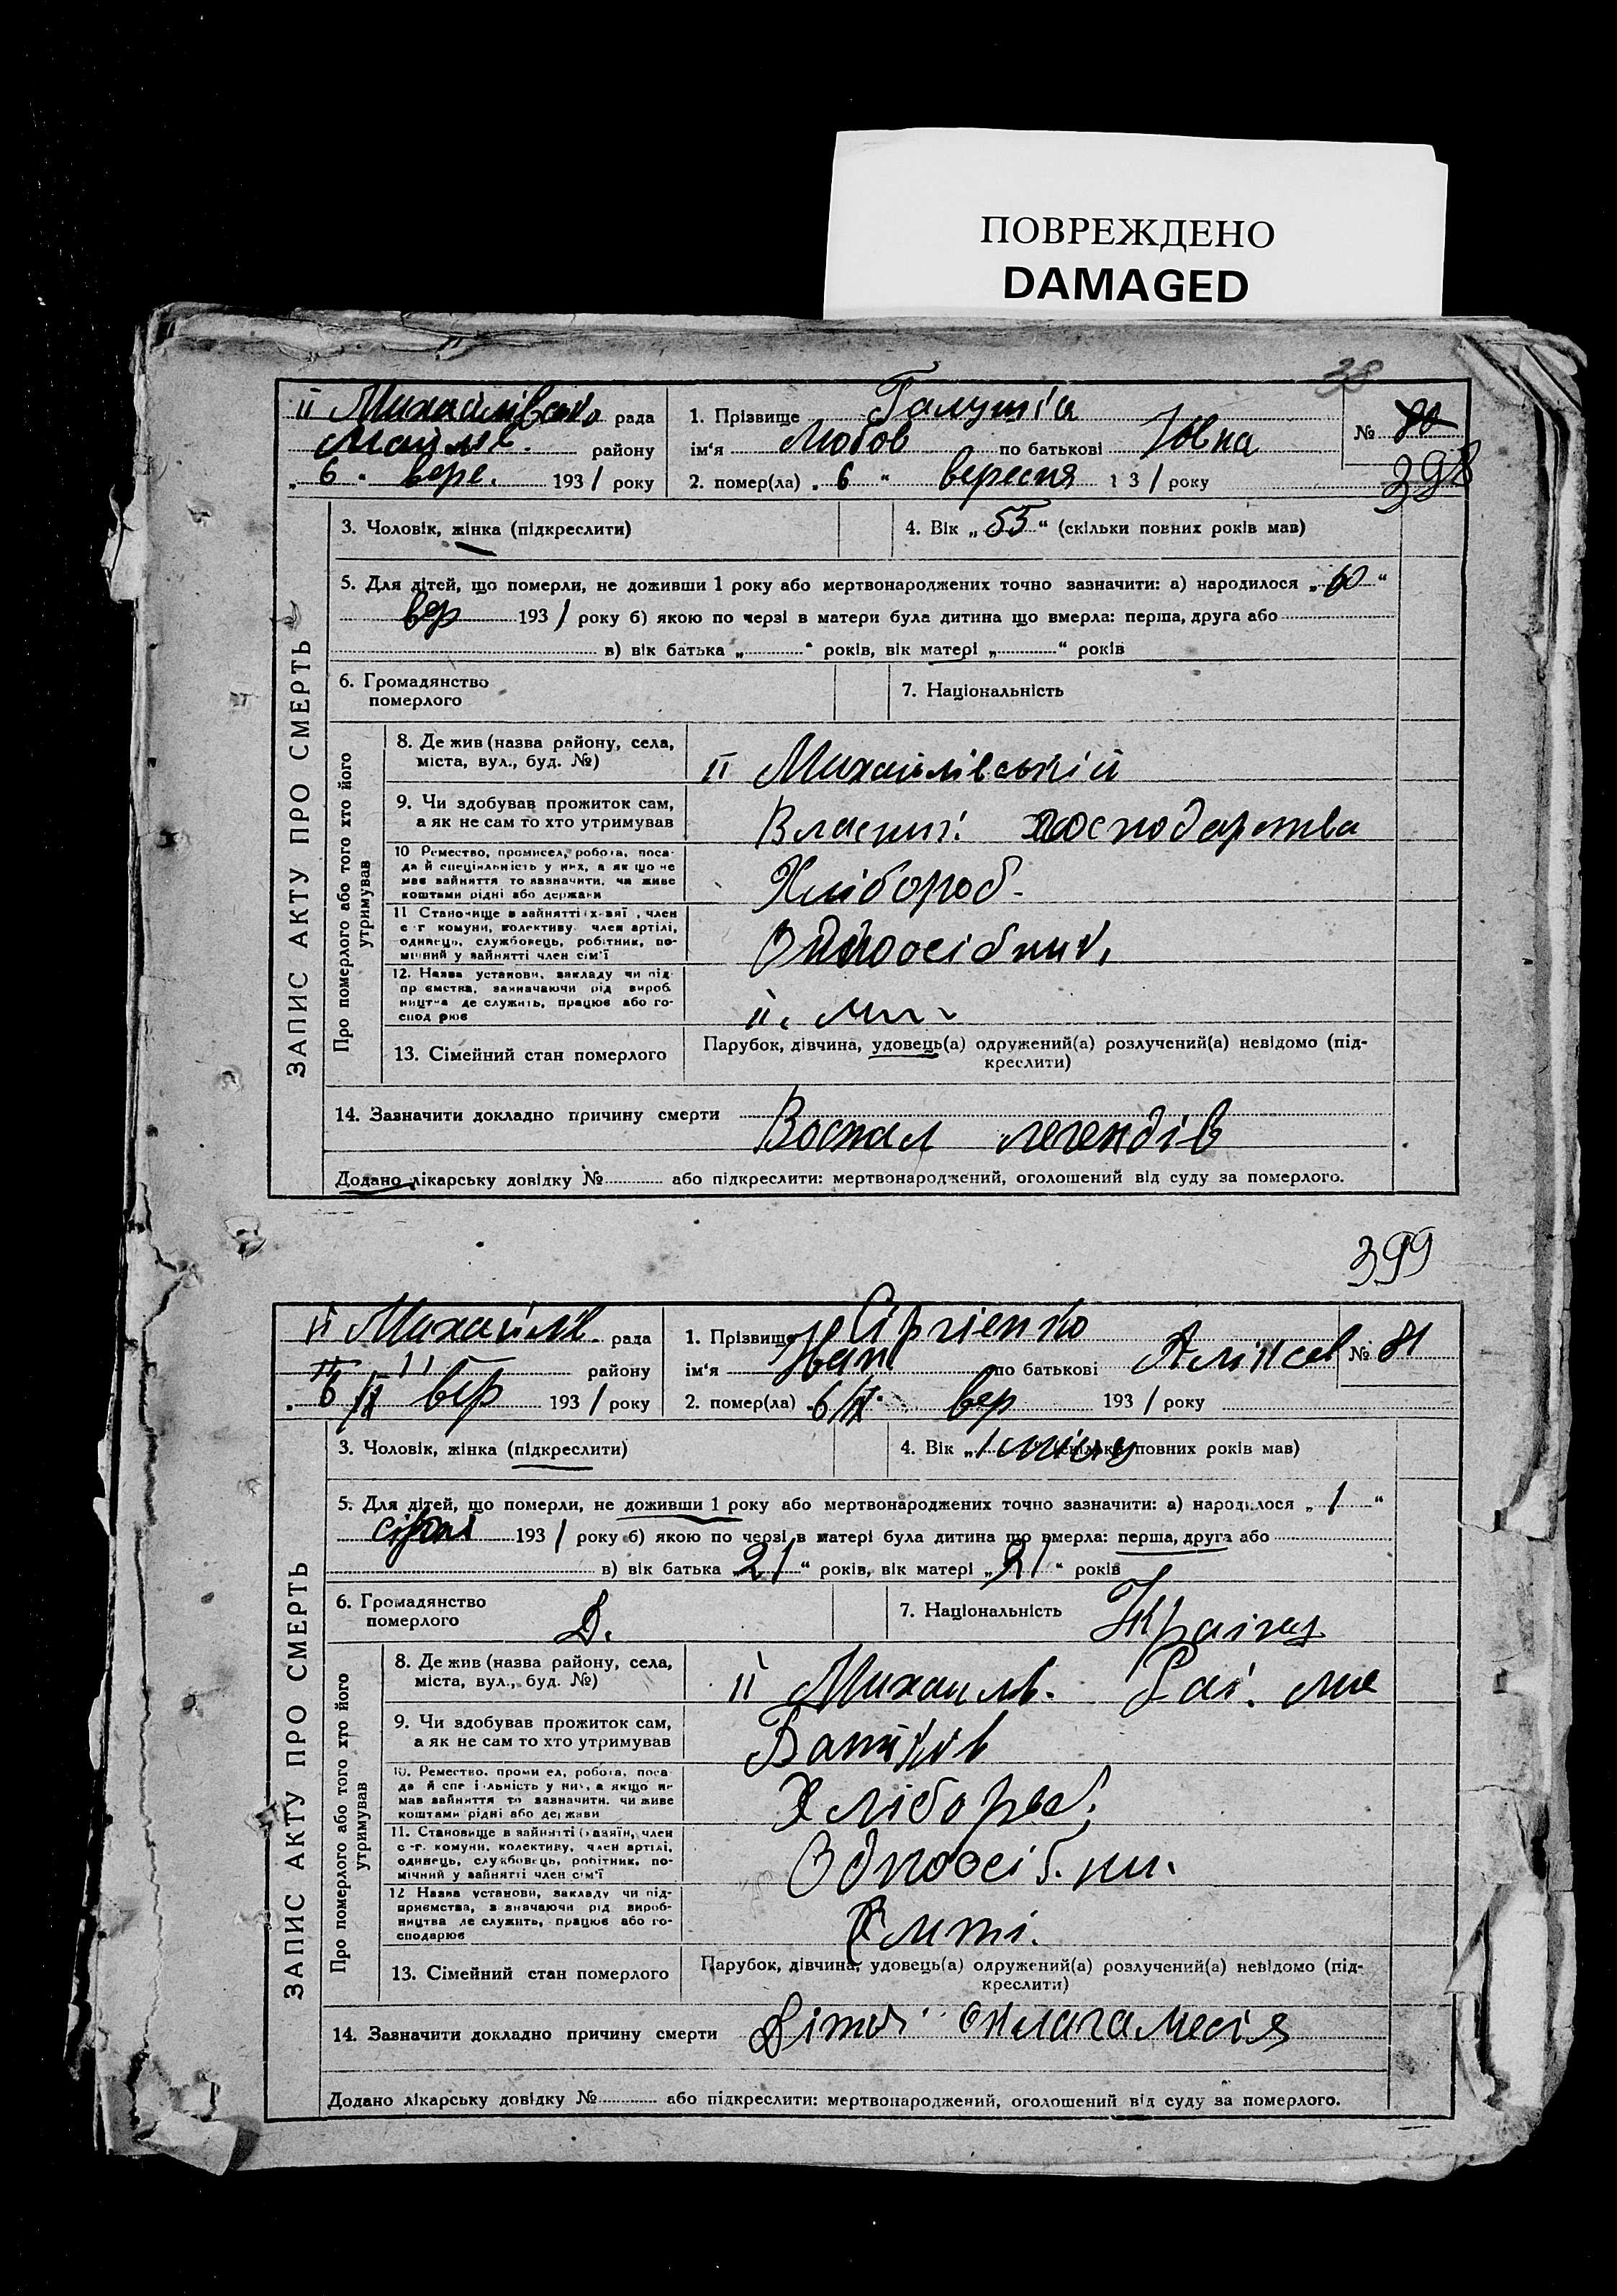 ПОВРЕЖДЕНО
DAMAGED
38
ІІ Михайлівсько рада
району
„ 6 " вере. 1931 року
1. Прізвище
ім'я Любов по батькові Іовна
2. помер(ла) „ 6 " вересня 1 3 1 року
№ 80
398
ЗАПИС АКТУ ПРО СМЕРТЬ
3. Чоловік, жінка (підкреслити)
4. Вік „ 55 " (скільки повних років мав)
5. Для дітей, що померли, не доживши 1 року або мертвонароджених точно зазначити: а) народилося „ "
вер 1931 року б) якою по черзі в матери була дитина що вмерла: перша, друга або
в) вік батька „ " років, вік матері „ " років
6. Громадянство
померлого
7. Національність
Про померлого або того хто його
утримував
8. Де жив (назва району, села,
міста, вул., буд. №)
ІІ Михайлівській
9. Чи здобував прожиток сам,
а як не сам то хто утримував
господарства
10 Ремество, промисел, робота, поса-
да й спеціяльність у них, а як що не
має зайняття то зазначити, чи живе
коштами рідні або держави
Хлібороб
11 Становище в зайнятті (хазяї , член
с г комуни, колективу член артілі,
одинець, службовець, робітник, по-
мічний у зайнятті член сім'ї
Одноосібник
12. Назва установи, закладу чи під-
пр ємства, зазначаючи рід вироб
ництва де служить, працює або го-
спод рює
13. Сімейний стан померлого
Парубок, дівчина, удовець(а) одружений(а) розлучений(а) невідомо (під-
креслити)
14. Зазначити докладно причину смерти
Воспал легендів
Додано лікарську довідку № або підкреслити: мертвонароджений, оголошений від суду за померлого.
399
ІІ Михайлів рада
району
6/ІХ вер 1931 року
1. Прізвище Сірієнко
ім'я Іван по батькові
2. помер(ла) 6/ІХ вер 1931 року
№ 81
ЗАПИС АКТУ ПРО СМЕРТЬ
3. Чоловік, жінка (підкреслити)
4. Вік „ 1 місяц (скільки повних років мав)
5. Для дітей, що померли, не доживши 1 року або мертвонароджених точно зазначити: а) народилося „ 1 "
1931 року б) якою по черзі в матері була дитина що вмерла: перша, друга або
в) вік батька „ 21 " років, вік матері „ 21 " років
6. Громадянство
померлого
7. Національність
Про померлого або того хто його
утримував
8. Де жив (назва району, села,
міста, вул., буд. №)
ІІ Михайлів.
9. Чи здобував прожиток сам,
а як не сам то хто утримував
Батьків
10. Ремество. проми ел, робота, поса-
да й спе і льність у них, а якщо не
мав зайняття то зазначити. чи живе
коштами рідні або держави
Хлібороб.
11. Становище в зайнятті (хазяїн, член
с-г. комуни, колективу, член артілі,
одинець, службовець, робітник, по-
мічний у зайнятті член сім'ї
Одноосіб. ни.
12 Назва установи, закладу чи під-
приємства, зазначаючи рід вироб-
ництва де служить, працює або го-
сподарює
13. Сімейний стан померлого
Парубок, дівчина, удовець(а) одружений(а) розлучений(а) невідомо (під-
креслити)
14. Зазначити докладно причину смерти
Додано лікарську довідку № або підкреслити: мертвонароджений, оголошений від суду за померлого.